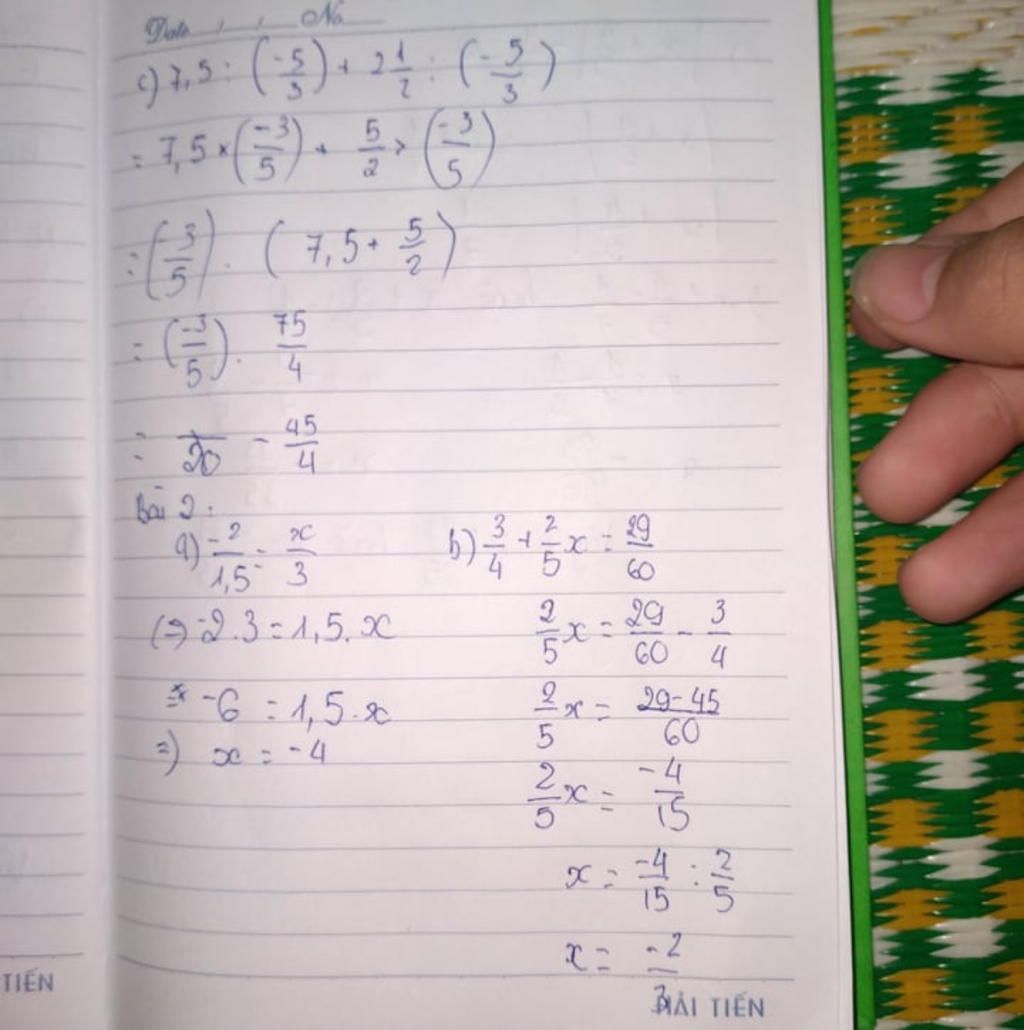 Date / / No
c) 7,5 : (-5/3) + 2 1/2 : (-5/3)
= 7,5 × (-3/5) + 5/2 × (-3/5)
= (-3/5) . (7,5 + 5/2)
= (-3/5) . 75/4
= /20 - 45/4
Bài 2:
a) -2/1,5 = x/3
(=) -2.3 = 1,5.x
=> -6 = 1,5.x
=) x = -4
b) 3/4 + 2/5 x = 29/60
2/5 x = 29/60 - 3/4
2/5 x = 29-45/60
2/5 x = -4/15
x = -4/15 : 2/5
x = -2/3
TIẾN
HẢI TIẾN